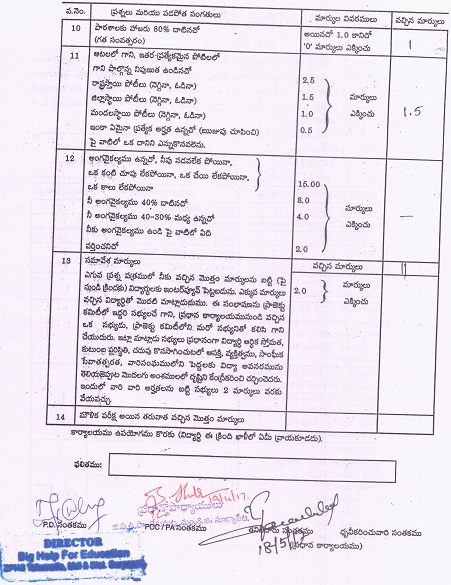 వ.నెం. ప్రశ్నలు మరియు పడపోత సంగతులు మార్కుల వివరములు వచ్చిన మార్కులు
10 పాఠశాలకు హాజరు 80% దాటినదో అయినదో 1.0 కానిదో 1
(గత సంవత్సరం) '0' మార్కులు ఎక్కించు
11 ఆటలలో గాని, ఇతర ప్రత్యేకమైన పోటీలలో
గాని పాల్గొన్న నిపుణుత ఉండినదో
రాష్ట్రస్థాయి పోటీలు (నెగ్గినా, ఓడినా) 2.5
జిల్లాస్థాయి పోటీలు (నెగ్గినా, ఓడినా) 1.5 మార్కులు
మండలస్థాయి పోటీలు (నెగ్గినా, ఓడినా) 1.0 ఎక్కించు 1.5
ఇంకా ఏమైనా ప్రత్యేక అర్హత ఉన్నచో (ఋజువు చూపించి) 0.5
పై వాటిలో ఒక దానిని ఎన్నుకొనవలెను.
12 అంగవైకల్యము ఉన్నదో, నీవు నడవలేక పోయినా,
ఒక కంటి చూపు లేకపోయినా, ఒక చేయి లేకపోయినా,
ఒక కాలు లేకపోయినా 15.00
నీ అంగవైకల్యము 40% దాటినదో 8.0 మార్కులు
నీ అంగవైకల్యము 40-30% మధ్య ఉన్నచో 4.0 ఎక్కించు —
నీకు అంగవైకల్యము ఉండి పై వాటిలో ఏది
వర్తించనిదో 2.0
13 సమావేశ మార్కులు వచ్చిన మార్కులు
ఎగువ ప్రశ్న పత్రములో నీకు వచ్చిన మొత్తం మార్కులను బట్టి (పై 2.0 మార్కులు
నుండి క్రిందకు) విద్యార్థులకు ఇంటర్వ్యూవ్ పెట్టబడును. ఎక్కువ మార్కులు ఎక్కించు
వచ్చిన విద్యార్థితో మొదటి మాట్లాడుదుము. ఈ సంభాషణను ప్రాజెక్టు
కమిటీలో ఇద్దరి సభ్యులచే గాని, (ప్రధాన కార్యాలయమునుండి వచ్చిన
ఒక సభ్యుడు, ప్రాజెక్టు కమిటీలోని మరో సభ్యునితో కలిసి గాని
చేయుదురు. ఇట్లా మాట్లాడు సభ్యులు ప్రధానంగా విద్యార్థి ఆర్థిక స్తోమత,
కుటుంబ పరిస్థితి, చదువు కొనసాగించుటలో ఆసక్తి, వ్యక్తిత్వము, సాంఘిక
సేవాతత్పరత, వారిసంఘములోని పెద్దలకు విద్యా అవసరమును
తెలియజెప్పుట మొదలగు అంశములలో దృష్టిని కేంద్రీకరించి చర్చించెదరు.
ఇందులో వారి వారి అర్హతలను బట్టి సభ్యులు 2 మార్కులు వరకు
వేయవచ్చు.
14 మౌళిక పరీక్ష అయిన తరువాత వచ్చిన మొత్తం మార్కులు
కార్యాలయము ఉపయోగము కొరకు (విద్యార్థి ఈ క్రింది ఖాళీలో ఏమీ వ్రాయకూడదు).
ఫలితము:
ప్రధానోపాధ్యాయులు
P.D. సంతకము PCC / PA సంతకము సంతకము ధృవీకరించువారి సంతకము
18/5/17 (ప్రధాన కార్యాలయము)
DIRECTOR
Big Help For Education